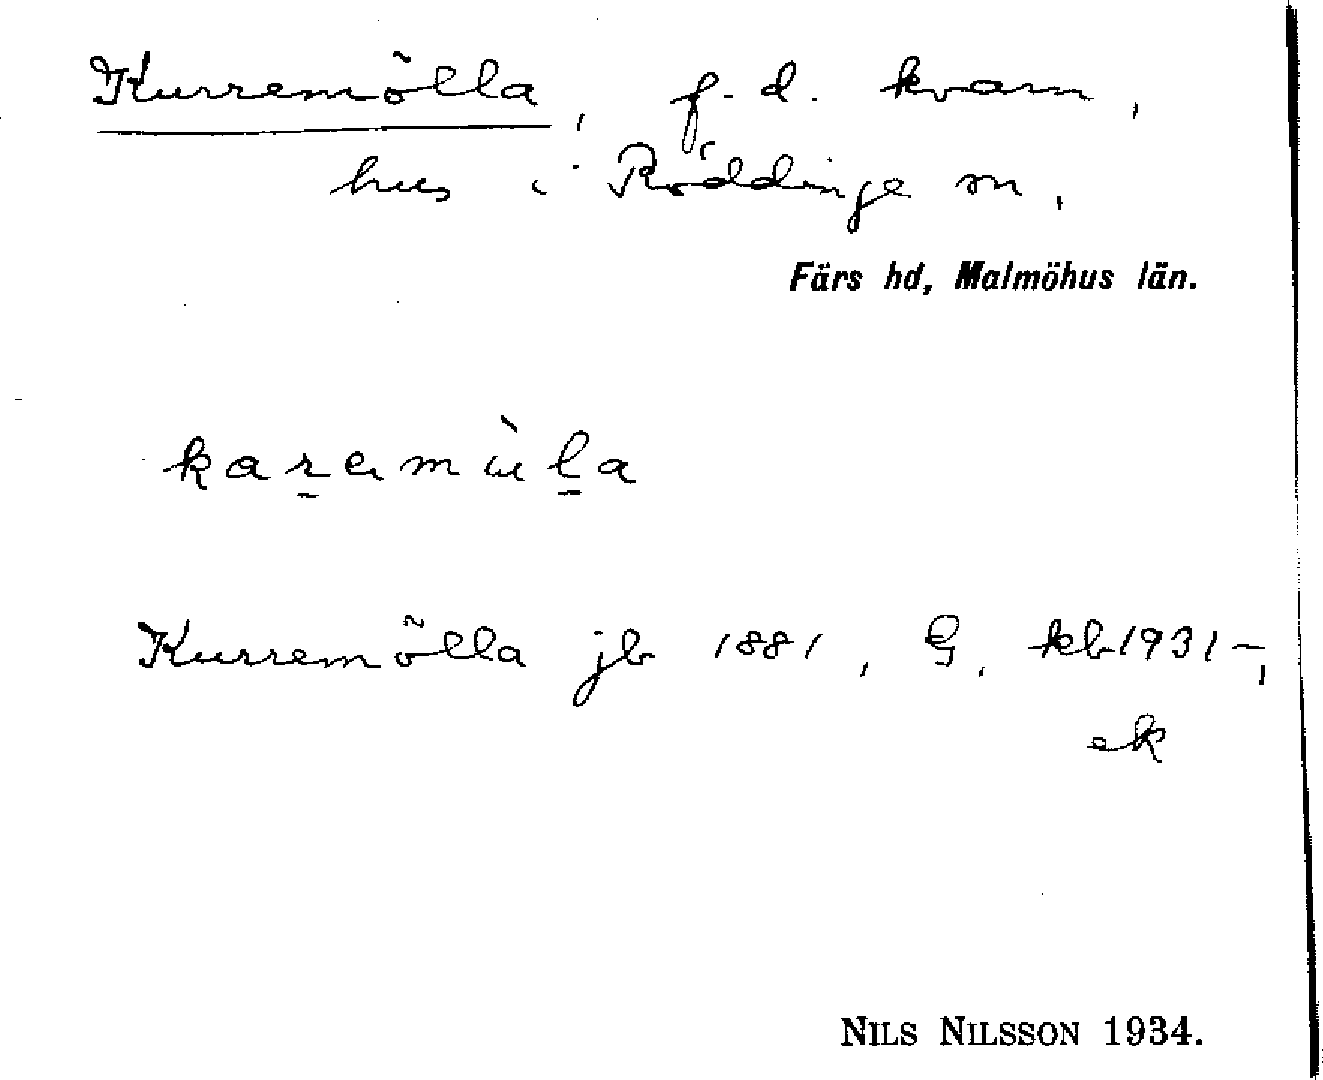 Kurremölla, f.d. kvarn,
hus i Röddinge sn,
Färs hd, Malmöhus län.
karəmùla
Kurremölla jb 1881, G, kb 1931-,
ek
NILS NILSSON 1934.